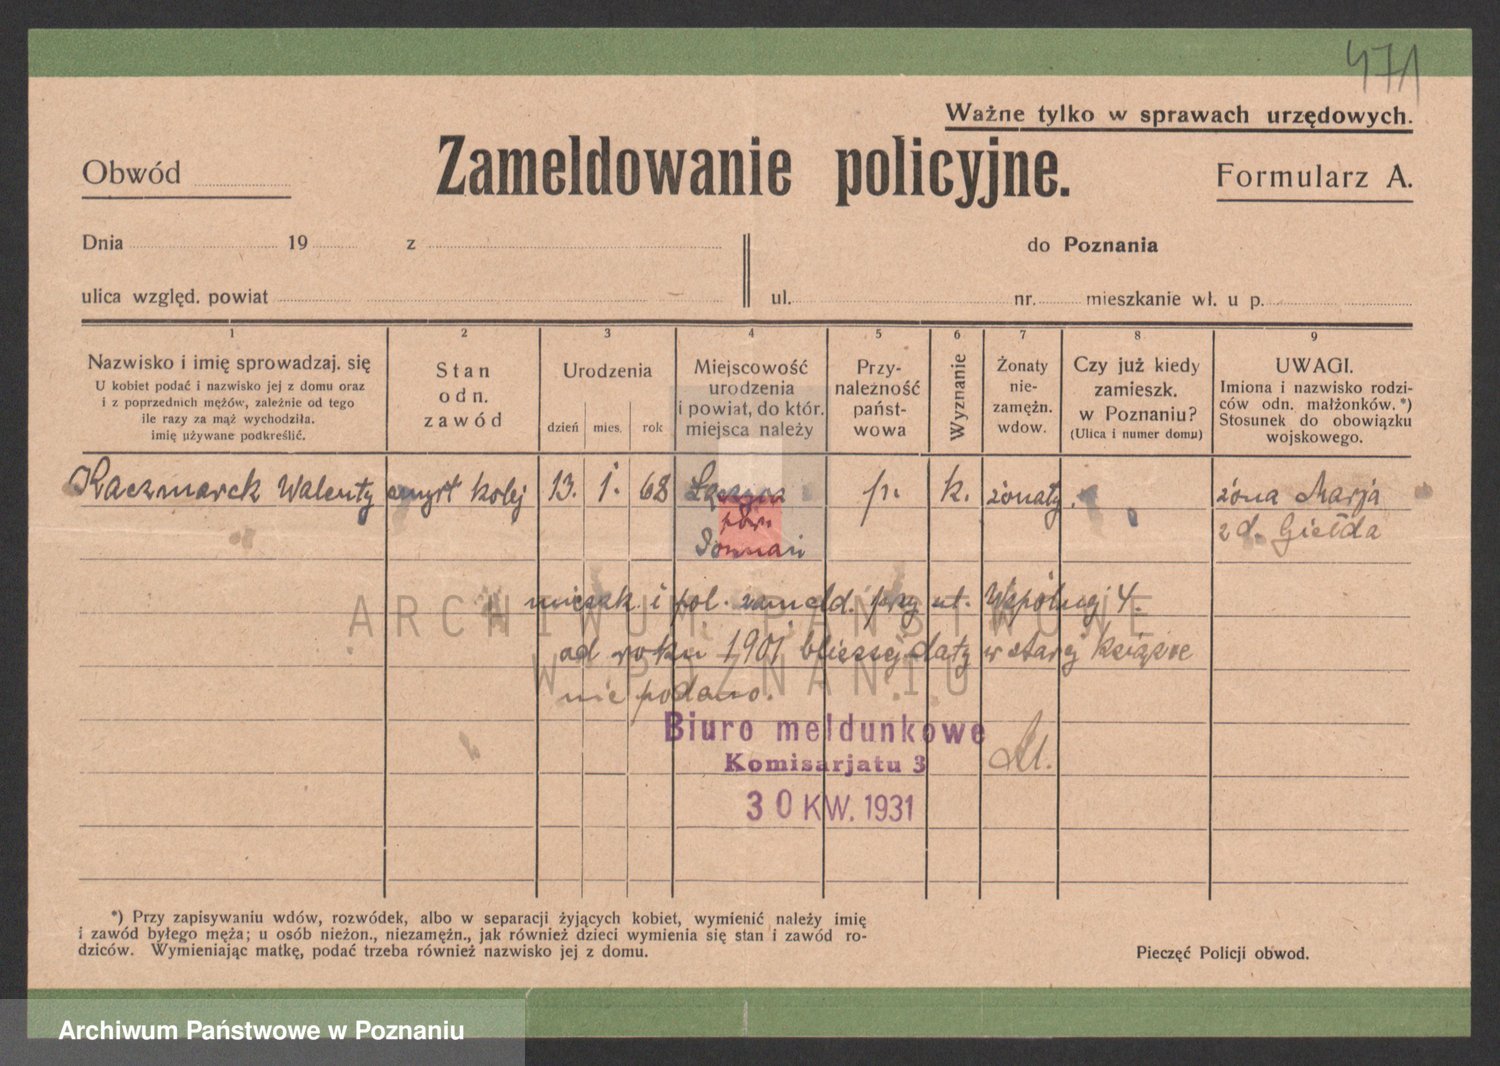 471
Ważne tylko w sprawach urzędowych.
Obwód
Zameldowanie policyjne.
Formularz A.
Dnia 19 z
do Poznania
ulica względ. powiat
ul. nr. mieszkanie wł. u p.
1 2 3 4 5 6 7 8 9
Nazwisko i imię sprowadzaj. się
U kobiet podać i nazwisko jej z domu oraz
i z poprzednich mężów, zależnie od tego
ile razy za mąż wychodziła.
imię używane podkreślić.
Stan
odn.
zawód
Urodzenia
dzień mies. rok
Miejscowość
urodzenia
i powiat, do któr.
miejsca należy
Przy-
należność
państ-
wowa
Wyznanie
Żonaty
nie-
zamężn.
wdow.
Czy już kiedy
zamieszk.
w Poznaniu?
(Ulica i numer domu)
UWAGI.
Imiona i nazwisko rodzi-
ców odn. małżonków.*)
Stosunek do obowiązku
wojskowego.
Kaczmarek Walenty emyrt kolej 13. 1. 68 p. k. żonaty. żona Marja
pow. z d. Giełda
Poznań
mieszk. i pol. zameld. przy ul. Wspólnej 4.
od roku 1901 bliższej daty w starej książce
nie podano.
ARCHIWUM PAŃSTWOWE
W POZNANIU
Biuro meldunkowe
Komisarjatu 3
30 KW. 1931
*) Przy zapisywaniu wdów, rozwódek, albo w separacji żyjących kobiet, wymienić należy imię
i zawód byłego męża; u osób nieżon., niezamężn., jak również dzieci wymienia się stan i zawód ro-
dziców. Wymieniając matkę, podać trzeba również nazwisko jej z domu.
Pieczęć Policji obwod.
Archiwum Państwowe w Poznaniu